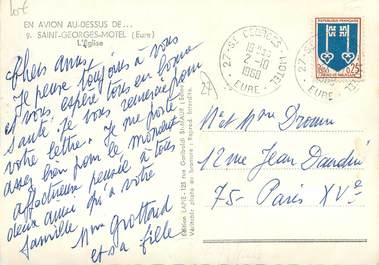 lot
EN AVION AU-DESSUS DE...
9. SAINT-GEORGES-MOTEL (Eure)
L'Église
Chers amis,
Je pense toujours à vous
et vous espère tous en bonne
santé. Je vous remercie pour
votre lettre. Je me porte
assez bien pour le moment
affectueuse pensée à tous
deux ainsi qu'à votre
famille
Mme Grottard
et sa fille
27
Edition LAPIE - 123 rue Garibaldi St-MAUR (Seine)
Véritable photo au bromure - Reprod. Interdite.
27-ST GEORGES-MOTEL
2-10
1968
EURE
27-ST
MOTEL
EURE
RÉPUBLIQUE FRANÇAISE
0,25
M et Mme Drouin
12 rue Jean Daudin
75 - Paris XVe